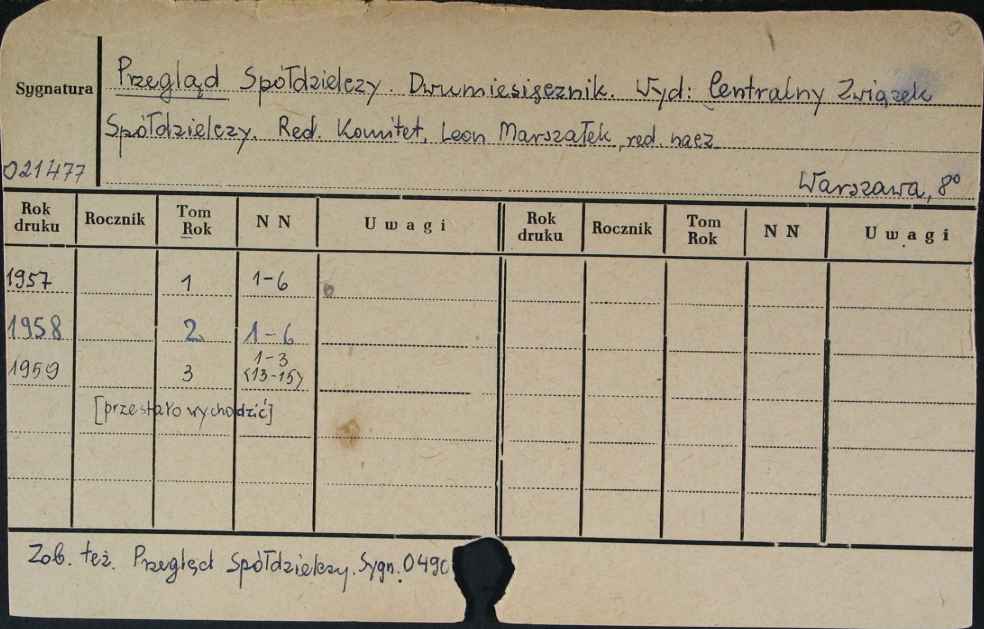 Sygnatura
Przegląd Spółdzielczy. Dwumiesięcznik. Wyd: Centralny Związek
Spółdzielczy. Red. Komitet, Leon Marszałek, red. nacz.
021477
Warszawa, 8°
Rok druku Rocznik Tom Rok N N Uwagi Rok druku Rocznik Tom Rok N N Uwagi
1957 1 1-6
1958 2 1-6
1959 3 1-3 (13-15)
[przestało wychodzić]
Zob. też. Przegląd Spółdzielczy. Sygn. 0490